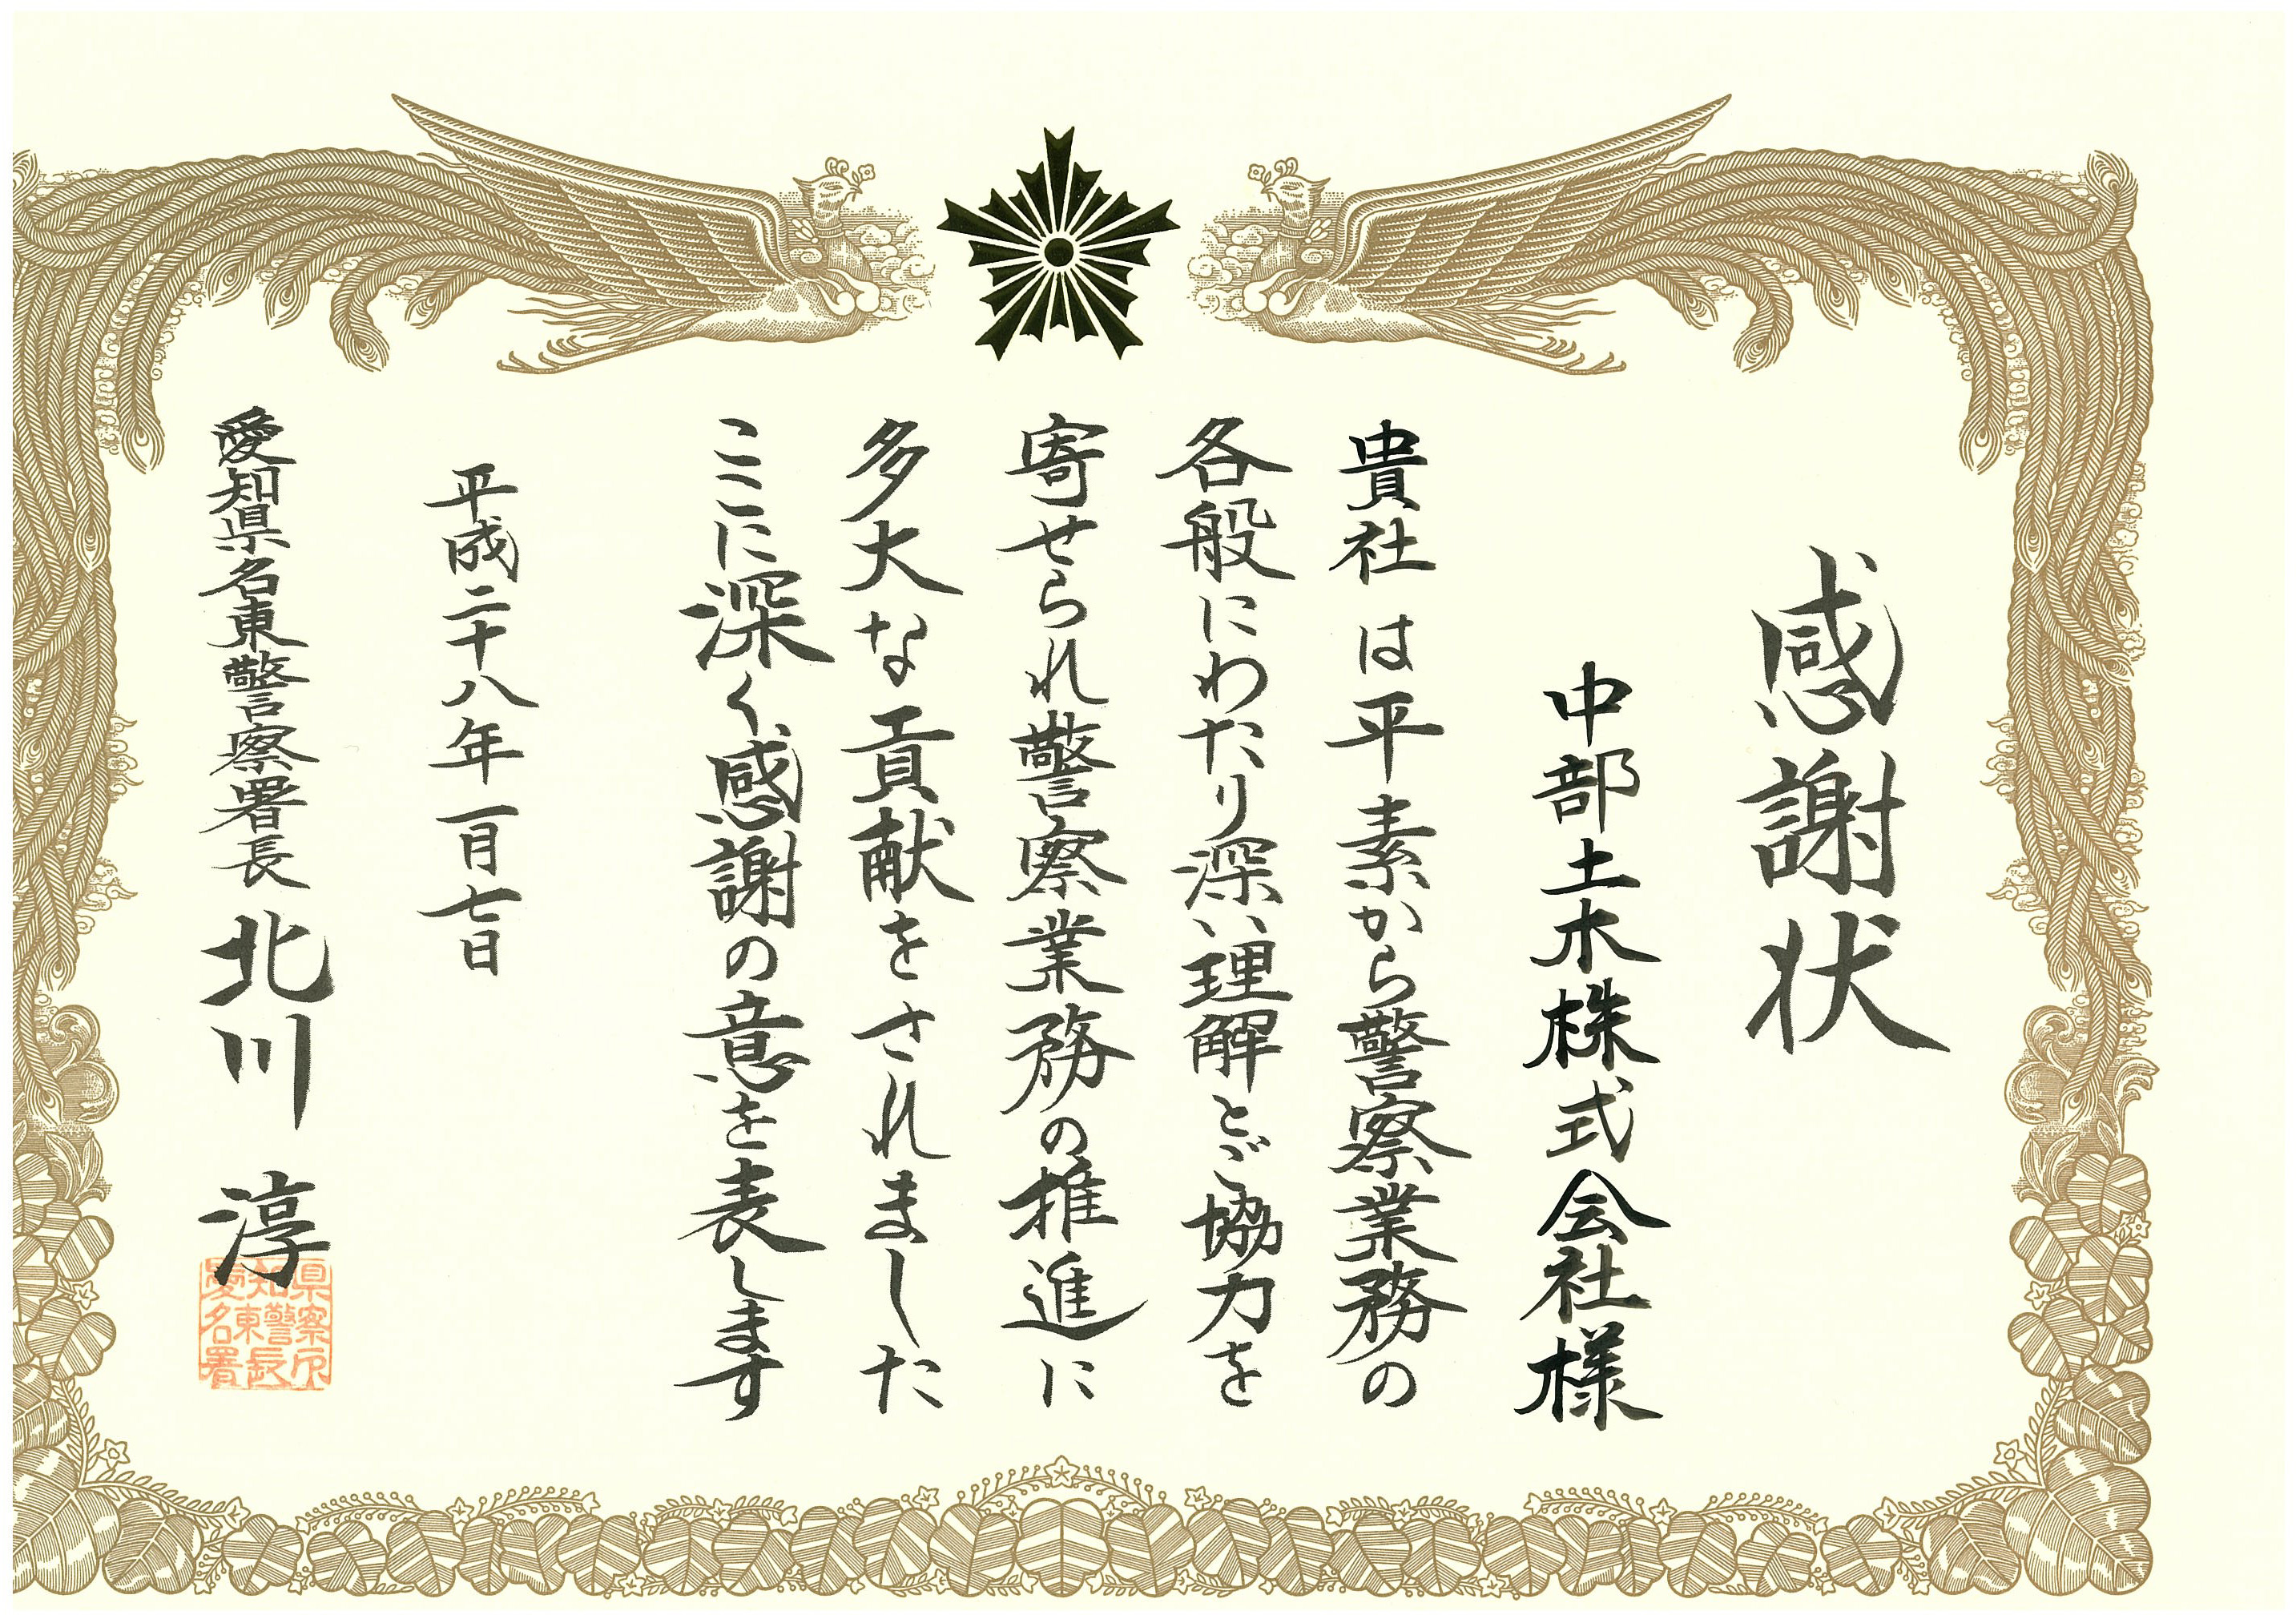 感謝状
中部土木株式会社様
貴社は平素から警察業務の
各般にわたり深い理解とご協力を
寄せられ警察業務の推進に
多大な貢献をされました
ここに深く感謝の意を表します
平成二十八年一月七日
愛知県名東警察署長 北川 淳
愛知県
名東警察
署長印